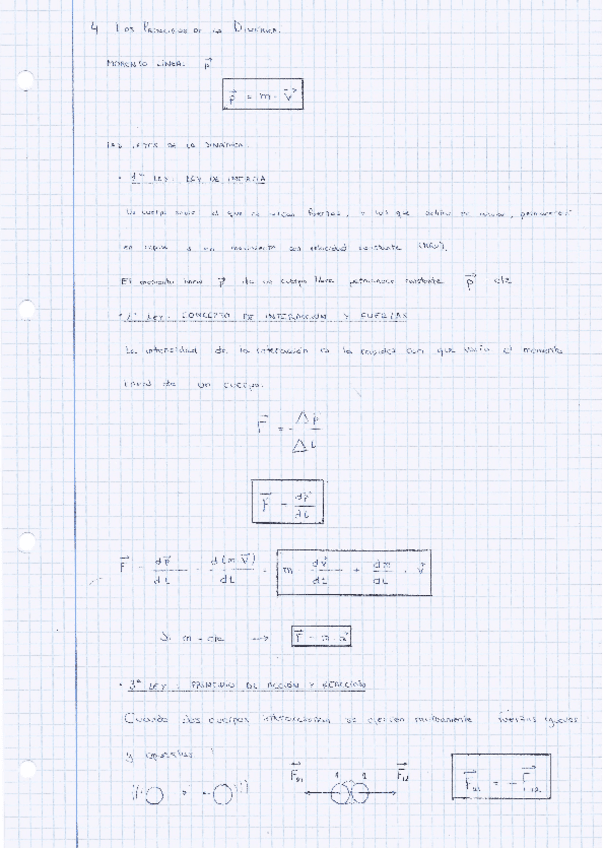 4 Los Principios de la Dinámica.
MOMENTO LINEAL \vec{p}
\vec{p} = m · \vec{v}
LAS LEYES DE LA DINÁMICA.
· 1ª LEY: LEY DE INERCIA
Un cuerpo sobre el que no actúan fuerzas, o las que actúan se anulan, permanece
en reposo o en movimiento con velocidad constante (MRU).
El momento lineal \vec{p} de un cuerpo libre permanece constante \vec{p} cte
· 2ª LEY: CONCEPTO DE INTERACCIÓN Y FUERZAS
La intensidad de la interacción es la rapidez con que varía el momento
lineal de un cuerpo.
\vec{F} = Δp / Δt
\vec{F} = d\vec{p} / dt
\vec{F} = d\vec{p}/dt = d(m \vec{v})/dt = m d\vec{v}/dt + dm/dt · \vec{v}
Si m = cte → \vec{F} = m · \vec{a}
· 3ª LEY: PRINCIPIO DE ACCIÓN Y REACCIÓN
Cuando dos cuerpos interaccionan se ejercen mutuamente fuerzas iguales
y opuestas
\vec{F}_{21} 1 2 \vec{F}_{12} \vec{F}_{21} = - \vec{F}_{12}